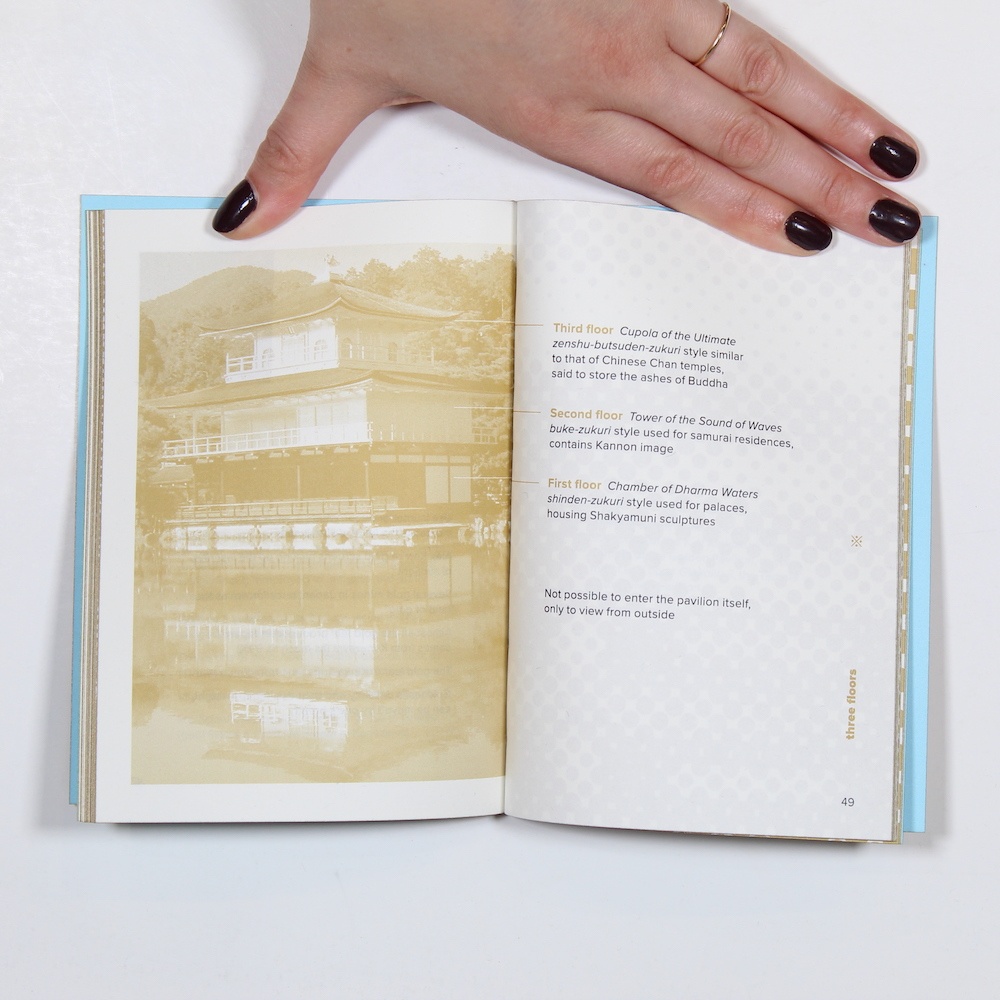 Third floor Cupola of the Ultimate
zenshu-butsuden-zukuri style similar
to that of Chinese Chan temples,
said to store the ashes of Buddha
Second floor Tower of the Sound of Waves
buke-zukuri style used for samurai residences,
contains Kannon image
First floor Chamber of Dharma Waters
shinden-zukuri style used for palaces,
housing Shakyamuni sculptures
※
Not possible to enter the pavilion itself,
only to view from outside
three floors
49